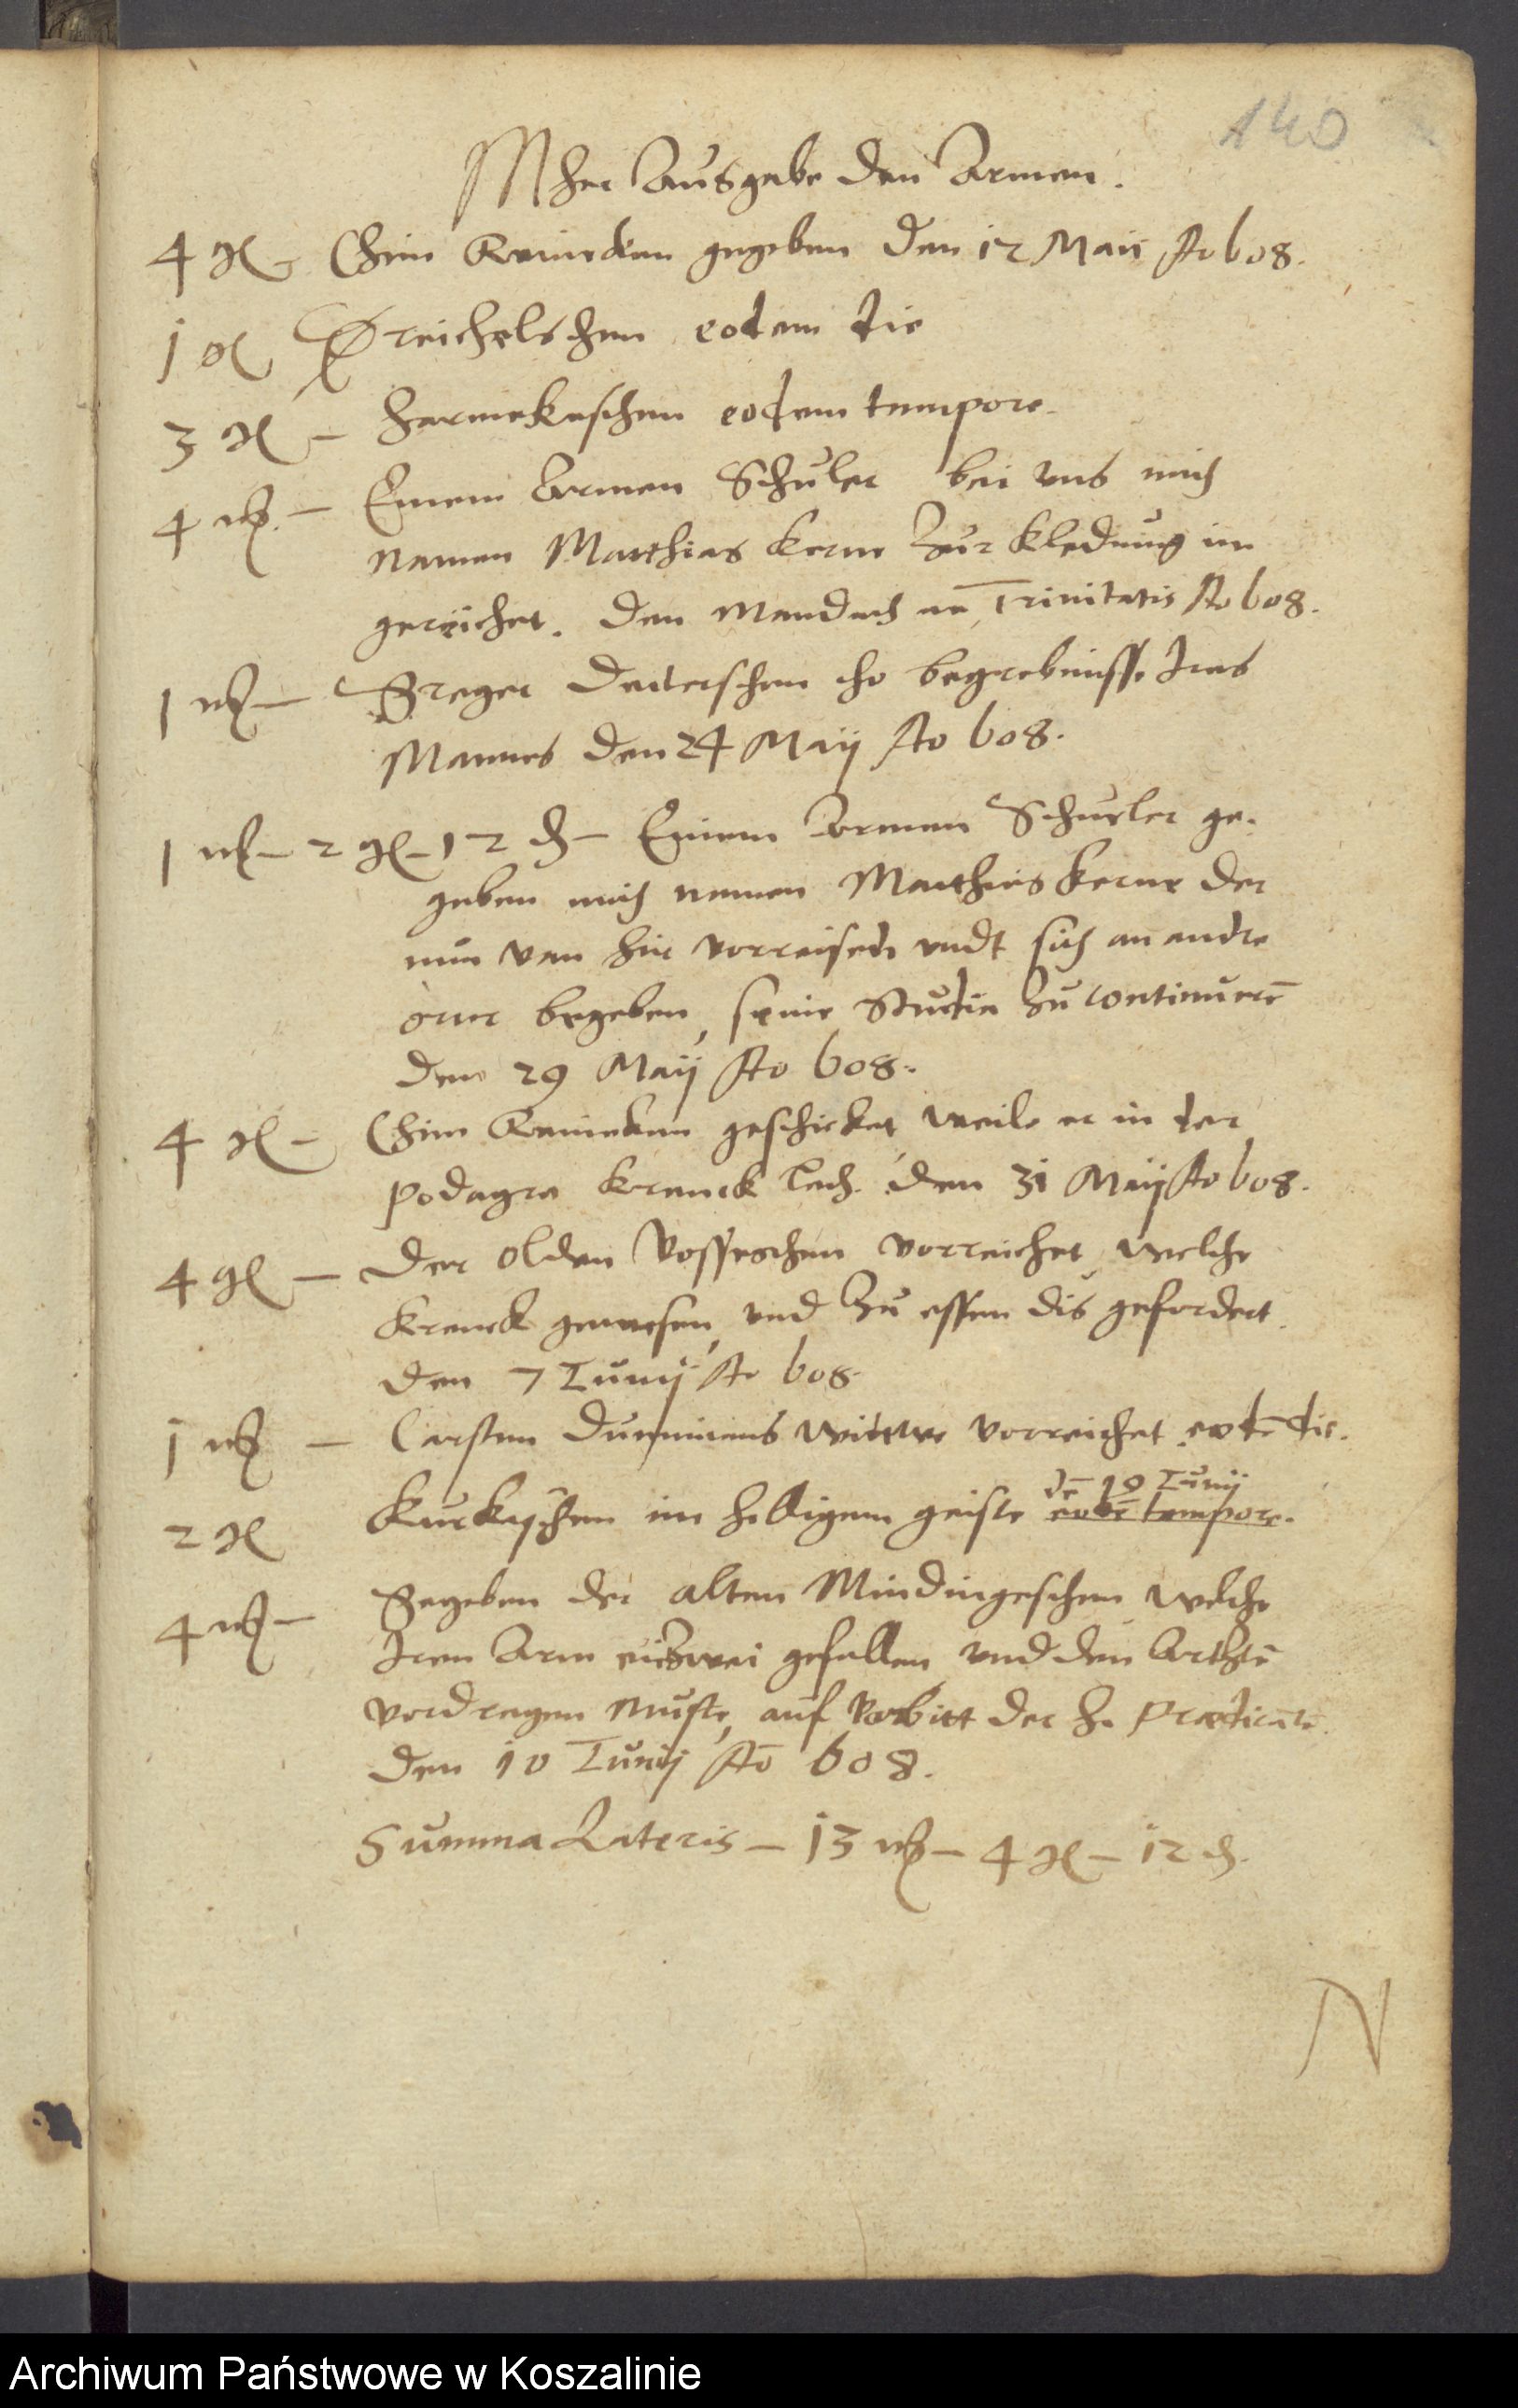 140
Mher Ausgabe den Armen.
4 gl Chim Reineken gegeben den 12 Maii Ao 608.
1 gl Dreichelschen eodem die
3 gl – Harmekeschen eodem tempore.
4 mk – Einem Armen Schuler bei uns mith
Namen Matthias Kerne Zur Kledung im
gereichet. den Mandach na Trinitatis Ao 608.
1 mk – Greger Deiterschen tho begrebnisse Ires
Mannes den 24 Maij Ao 608.
1 mk – 2 gl – 12 d – Einem Armen Schuler ge-
geben mith namen Matthias Kerne der
nun van hir vorreiset undt sich an andre
orter begeben, seine Studia Zu continueren̄
den 29 Maij Ao 608.
4 gl – Chim Reineken geschicket, weile er in der
Podagra kranck lach. den 31 Maij Ao 608.
4 gl – Der Olden Vosseschen vorreichet, welche
Kranck gewesen, und Zu essen dis gefordert.
den 7 Iunij Ao 608.
1 mk – Carsten Dummans Witwe vorreichet eodē die.
dē 10 Iunij
2 gl Kurkeschen im hilligem geiste eodē tempore.
4 mk – Gegeben der alten Mindingeschen welche
Iren Arm entzwei gefallen, und den Artztē
vordragen muste, auf Vorbitt der H. Prædicantē.
den 10 Iunij Ao 608.
Summa Lateris – 13 mk – 4 gl – 12 d.
N
Archiwum Państwowe w Koszalinie